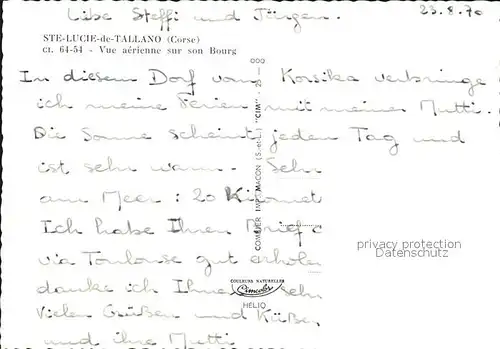 Liebe Steffi und Jürgen.
23.8.70
STE-LUCIE-de-TALLANO (Corse)
CI. 64-54 - Vue aérienne sur son Bourg
In diesem Dorf von Korsika verbringe
ich meine Ferien mit meiner Mutti.
Die Sonne scheint jeden Tag und
ist sehr warm. Sehr
am Meer : 20 Kilomet
Ich habe Ihren Brief
via Toulouse gut erhalen
danke ich Ihnen sehr
Vielen Grüßen und Küßen
und ihre Mutti
COMBIER IMP. MACON (S.-et-L.) "CIM"
COULEURS NATURELLES
Cimcolor
HELIO
privacy protection
Datenschutz